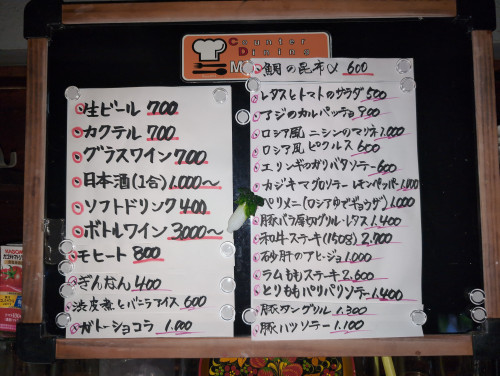 Counter
Dining
M
生ビール 700
カクテル 700
グラスワイン 700
日本酒(1合) 1.000〜
ソフトドリンク 400
ボトルワイン 3000〜
モヒート 800
ぎんなん 400
渋皮煮とバニラアイス 600
ガトーショコラ 1.000
鯛の昆布〆 600
レタスとトマトのサラダ 500
アジのカルパッチョ 900
ロシア風 ニシンのマリネ 1.000
ロシア風 ピクルス 600
エリンギのガリバタソテー 600
カジキマグロソテー レモンペッパー 1.000
ペリメニ(ロシアゆでギョウザ) 1.000
豚バラ厚切グリル・レタス 1.400
和牛ステーキ(150g) 2.700
砂肝のアヒージョ 1.000
ラムももステーキ 2.600
とりももパリパリソテー 1.400
豚タングリル 1.300
豚ハツソテー 1.100